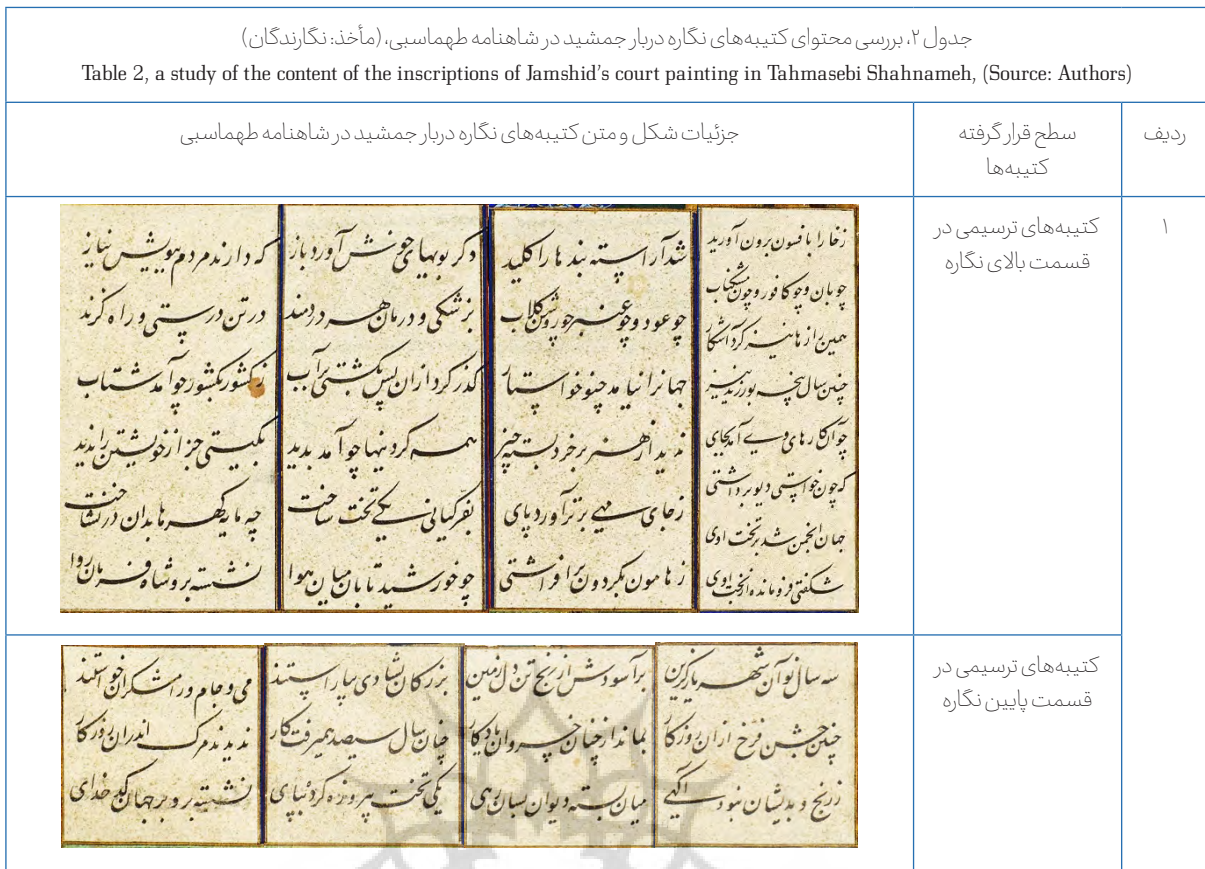 جدول ۲، بررسی محتوای کتیبه‌های نگاره دربار جمشید در شاهنامه طهماسبی، (مأخذ: نگارندگان)
Table 2, a study of the content of the inscriptions of Jamshid's court painting in Tahmasebi Shahnameh, (Source: Authors)
ردیف
سطح قرار گرفته
کتیبه‌ها
جزئیات شکل و متن کتیبه‌های نگاره دربار جمشید در شاهنامه طهماسبی
۱
کتیبه‌های ترسیمی در
قسمت بالای نگاره
زخارا بافسون برون آورید
چو بان و چو کافور و چون مشکناب
همین رازها نیز کرد آشکار
چنین سال پنجه بورزید نیز
چو آن کارهای وی آمد بجای
که چون خواستی دیو برداشتی
جهان انجمن شد بر تخت اوی
شکفتی فرومانده از بخت اوی
شد آراسته بندها را کلید
چو عود و چو عنبر چو روشن کلاب
جهانرا نیامد چنو خواستار
ندید از هنر بر خرد بسته چیز
زجای مهی برتر آورد پای
ز هامون بکردون برافراشتی
دکر بویهای خوش آورد باز
بزشکی و درمان هر دردمند
کذر کرد ازان پس بکشتی بر آب
همه کردنیها چو آمد بدید
بفر کیانی یکی تخت ساخت
چو خورشید تابان میان هوا
که دارند مردم ببویش نیاز
در تن درستی و راه کزند
ز کشور بکشور چو آمد شتاب
بکیتی جز از خویشتن را ندید
چه مایه کهرها بدان در نشاخت
نشسته برو شاه فرمان روا
کتیبه‌های ترسیمی در
قسمت پایین نگاره
سه سال نو آن شهریار کزین
چنین جشن فرخ ازان روزکار
ز رنج و بدیشان نبود آکهی
برآسودش از رنج تن دل
بماند از چنان خسروان یادکار
میان بسته دیوان بسان رهی
بزرکان بشادی بیاراستند
چنان سال سیصد همیرفت کار
یکی تخت پیروزه کرده بپای
می و جام و رامشکران خواستند
ندیدند مرک اندران روزکار
نشسته برو بر جهان کدخدای